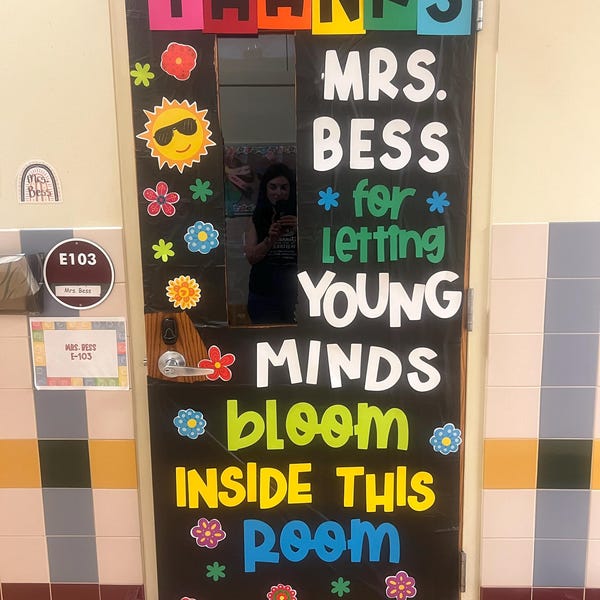 THANKS
MRS.
BESS
for
Letting
YOUNG
MINDS
bloom
INSIDE THIS
ROOM
Mrs.
Bess
E103
Mrs Bess
MRS. BESS
E-103